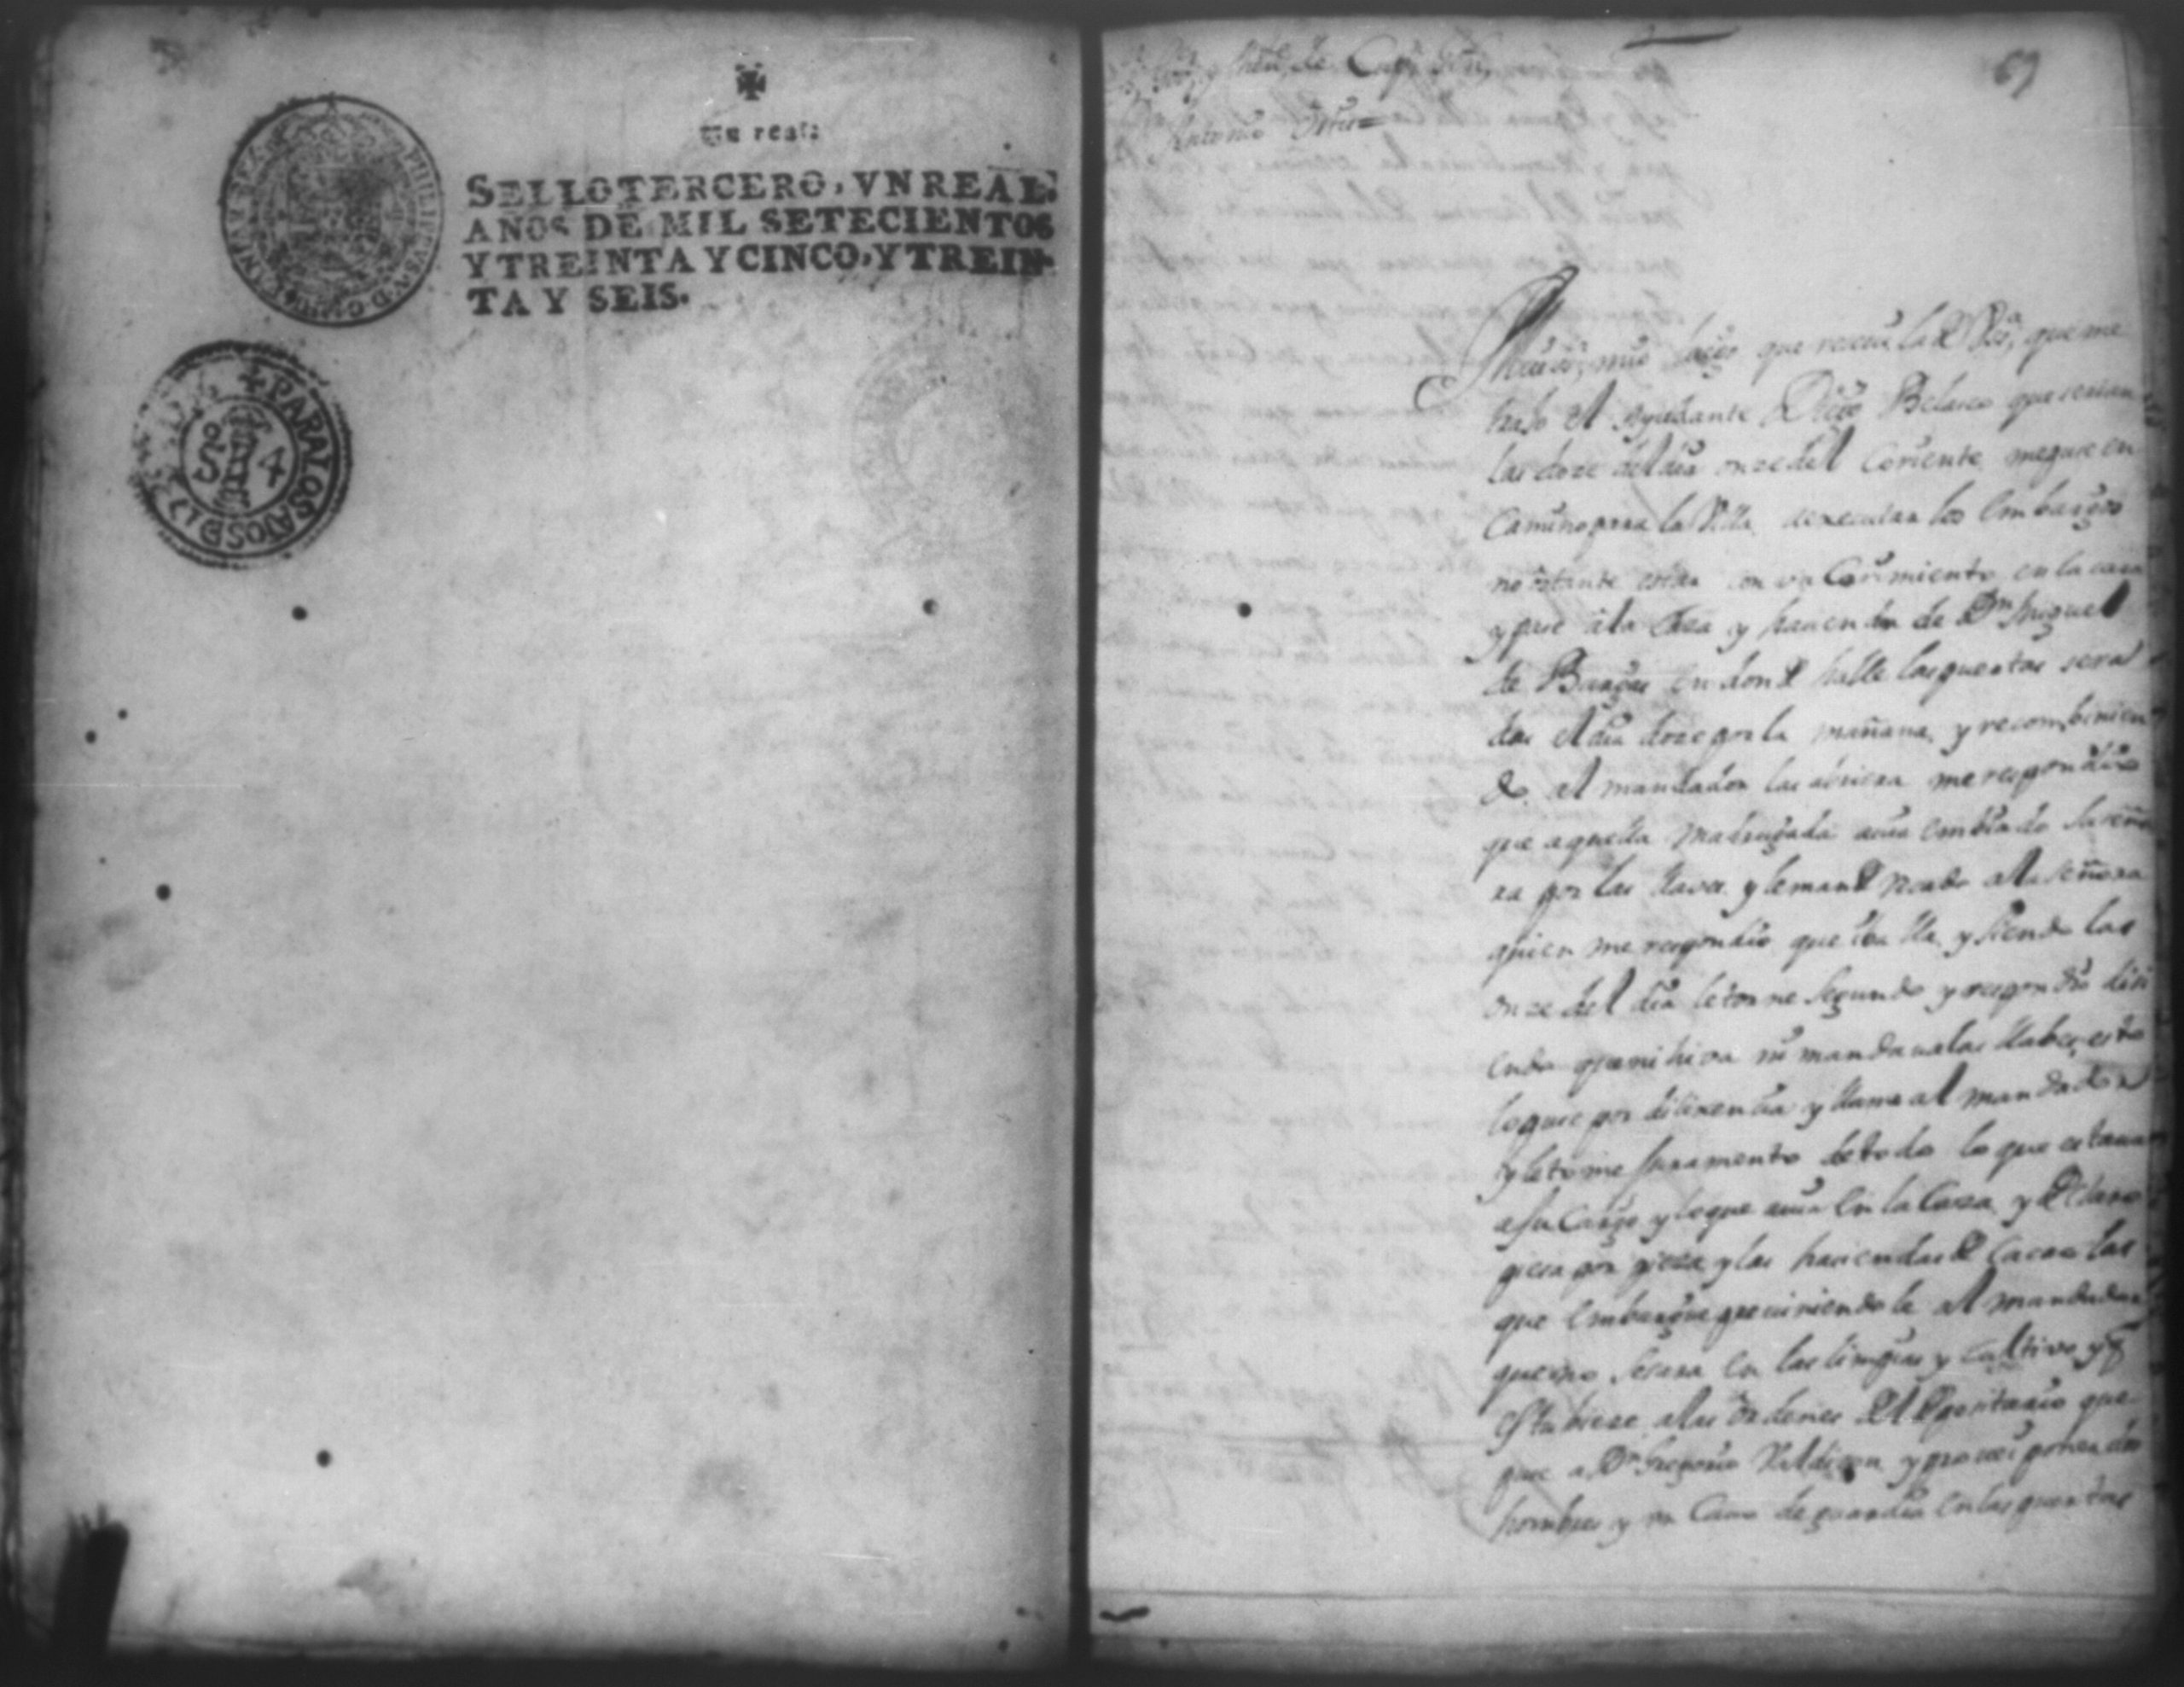 Un real:
SELLO TERCERO, VN REAL:
AÑOS DE MIL SETECIENTOS
Y TREINTA Y CINCO, Y TREIN-
TA Y SEIS.
PHILIPPVS V D G
+ PARA LOS AÑOS DE 173
S 4
69
Antonio
mio luego que receui la de Vsa, que me
trajo el Ayudante Diego Belasco que serian
las doze del dia onze del Coriente me puse en
Camino para la Villa a executar los embargos
no ostante estar con un Corimiento en la cara
y pase a la Casa y hacienda de Dn Miguel
de en donde halle las puertas serra
das el dia doze por la mañana, y recombinien
do al mandador las abriera me respondio
que aquella madrugada auia embiado la seño
ra por las llaves y le mande recado a la señora
quien me respondio que iba lla y siendo las
onze del dia le torne segundo y respondio disi
endo que ni hiva ni mandava las llabes, esto
lo puse por dilixencia y llame al mandador
y le tome juramento de todo lo que estaua
a su Cargo y lo que auia en la Casa y
pieza por pieza y las haciendas de Cacao las
que embargue preuiniendole al mandador
que no sesara en las limpias y cultivo y q
estubiese a las ordenes del Depositario que
puse a Dn Gregorio y
hombres y un Cauo de guardia en las puertas